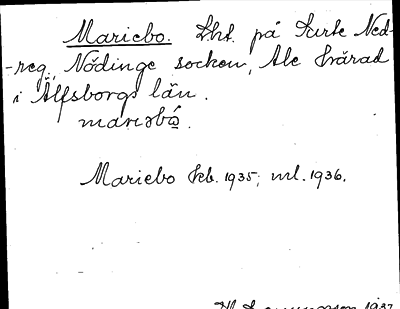 Mariebo. Lht. på Surte Ned-
-reg., Nödinge socken, Ale härad
i Älfsborgs län.
marɩəbώ̣.
Mariebo Kb. 1935; ml. 1936.
1937